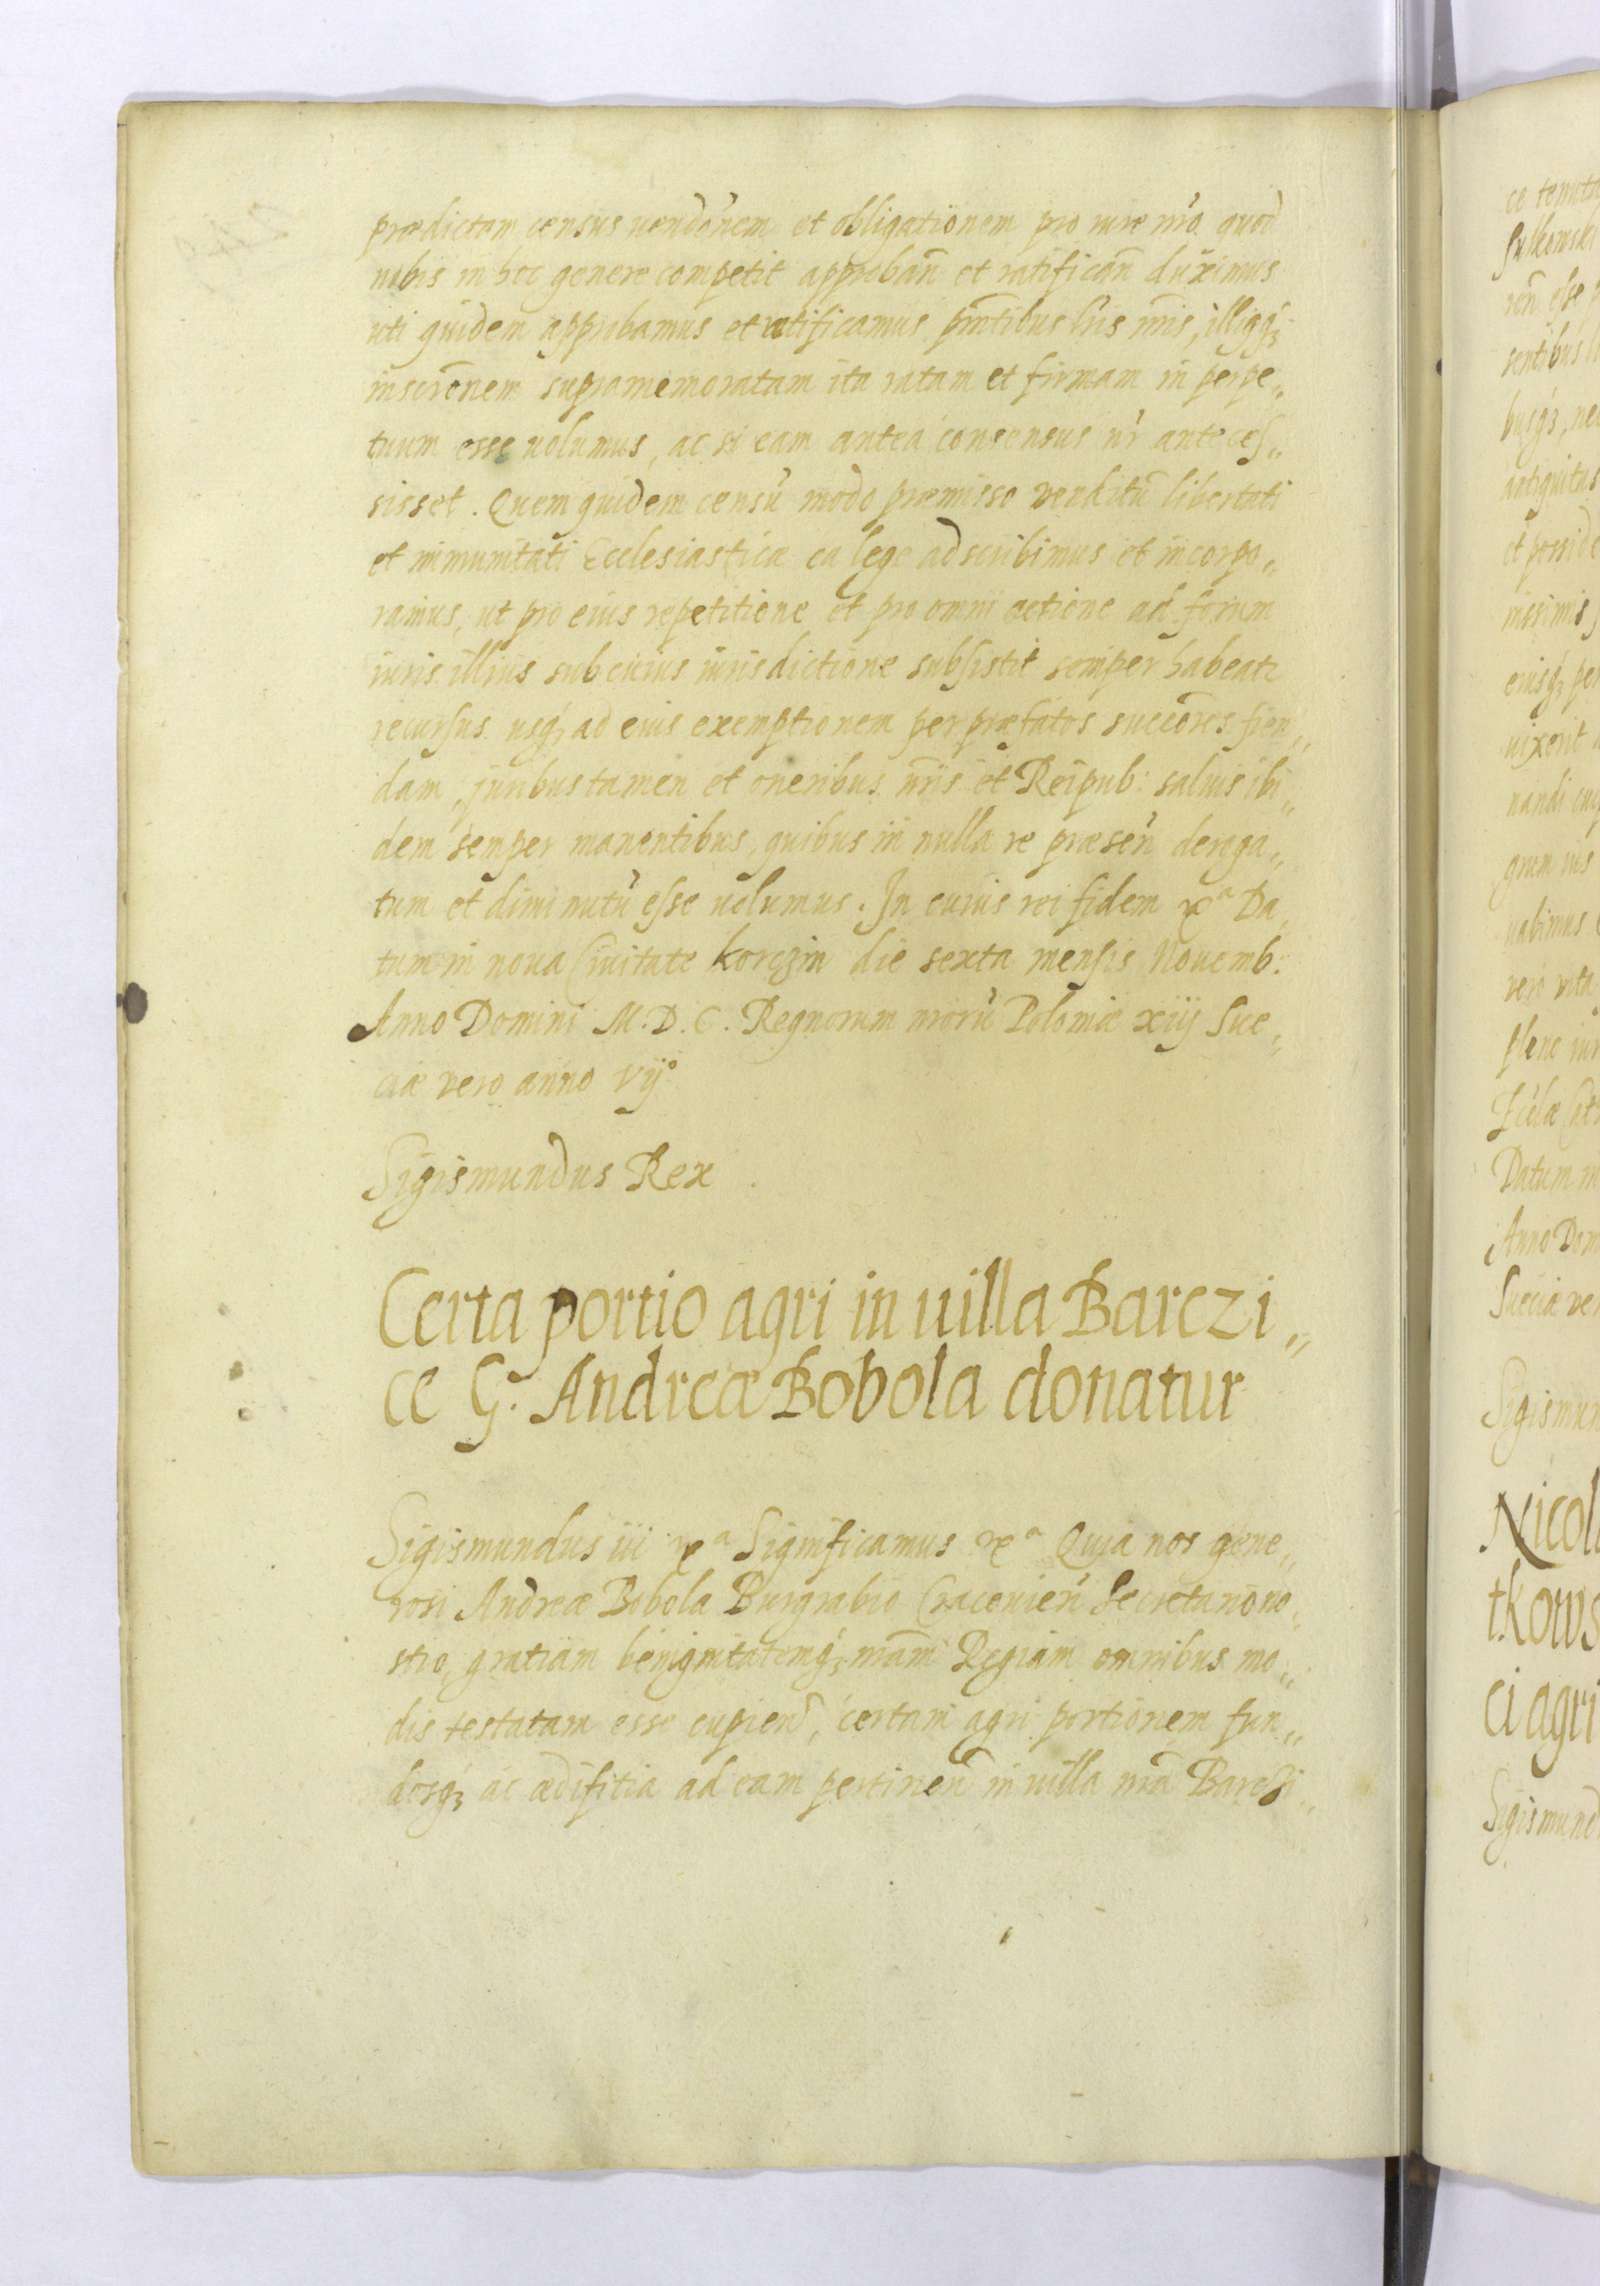 prædictam census uendōnem et obligationem pro iure nr̄o quod
nobis in hoc genere competit approban̄ et ratifican̄ duximus
uti quidem approbamus et ratificamus pn̄tibus lr̄is nr̄is, illiqꝫ
inscrōnem supramemoratam ita ratam et firmam in perpe„
tuum esse uolumus, ac si eam antea consensus nr̄ anteces„
sisset. Quem quidem censū modo præmisso venditū libertati
et immunitati Ecclesiasticæ ea lege adscribimus et incorpo„
ramus, ut pro eius repetitione et pro omni actione ad forum
iuris illius sub cuius iurisdictione subsistit semper habeatr
recursus usqꝫ ad eius exemptionem per præfatos succōres fien„
dam, juribus tamen et oneribus nr̄is et Reipub: saluis ibi„
dem semper manentibus, quibus in nulla re præsen̄ deroga„
tum et diminutū esse uolumus. In cuius rei fidem ꝛcᵃ Da„
tum in noua Ciuitate Korczin die sexta mensis Nouemb:
Anno Domini M.D.C. Regnorum nr̄orū Poloniæ xiij Sue„
ciæ vero anno vijº
Sigismundus Rex
Certa portio agri in uilla Barczi„
ce G. Andreæ Bobola donatur
Sigismundus iii ꝛcᵃ Significamus ꝛcᵃ Quia nos gene„
rosi Andreæ Bobola Burgrabio Cracouien̄ Secretario no„
stro, gratiam benignitatemqꝫ nr̄am Regiam omnibus mo„
dis testatam esse cupien̄, certam agri portionem fun„
dosqꝫ ac ædifitia ad eam pertinen̄ in uilla nr̄a Barczi„
ce
Sulkowski
sentibus
busqꝫ, ne
antiquitus
et posside
nissimis
eiusqꝫ per
uixerit
nandi
grum ius
uabimus
vero vita
pleno iur
Datum in
Anno Dom
Sueciæ ve
Sigismun
Nicol
tkows
ci agri
Sigismund